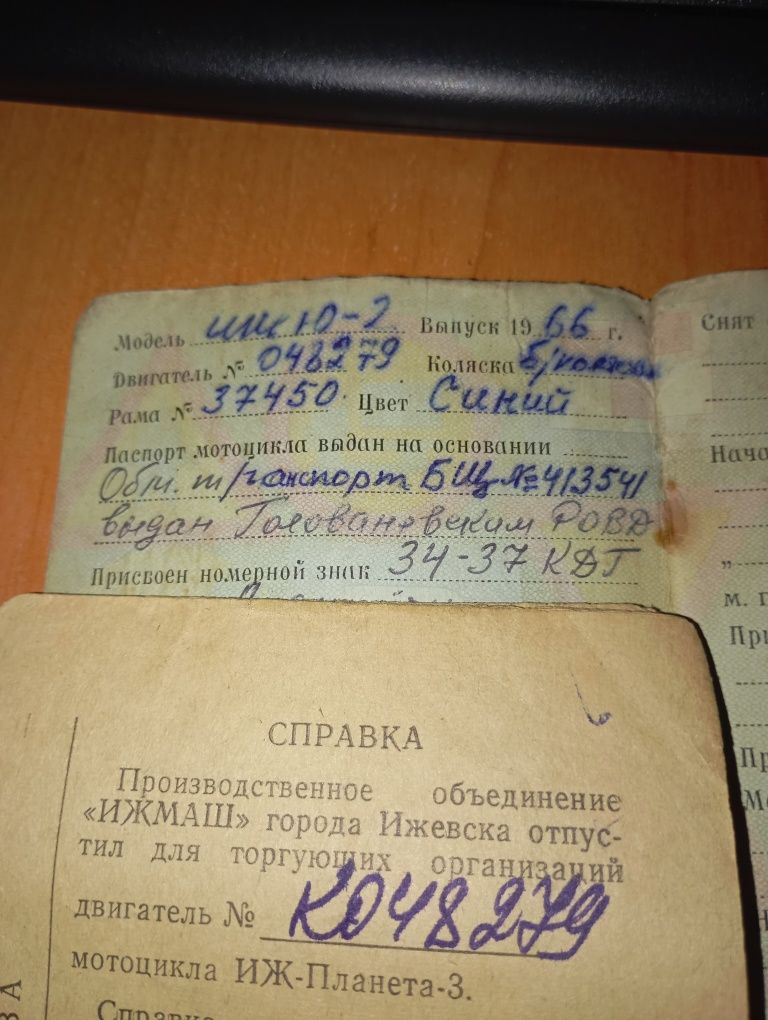 Модель ИЖ Ю-2 Выпуск 1966 г.
Двигатель № 048279 Коляска
Рама № 37450 Цвет Синий
Паспорт мотоцикла выдан на основании
Обм. т/паспорт БЩ №413541
выдан Головановским РОВД
Присвоен номерной знак 34-37 КДГ
Снят
Нача
„
м. п
При
СПРАВКА
Производственное объединение
«ИЖМАШ» города Ижевска отпус-
тил для торгующих организаций
двигатель № К048279
мотоцикла ИЖ-Планета-3.
Справка